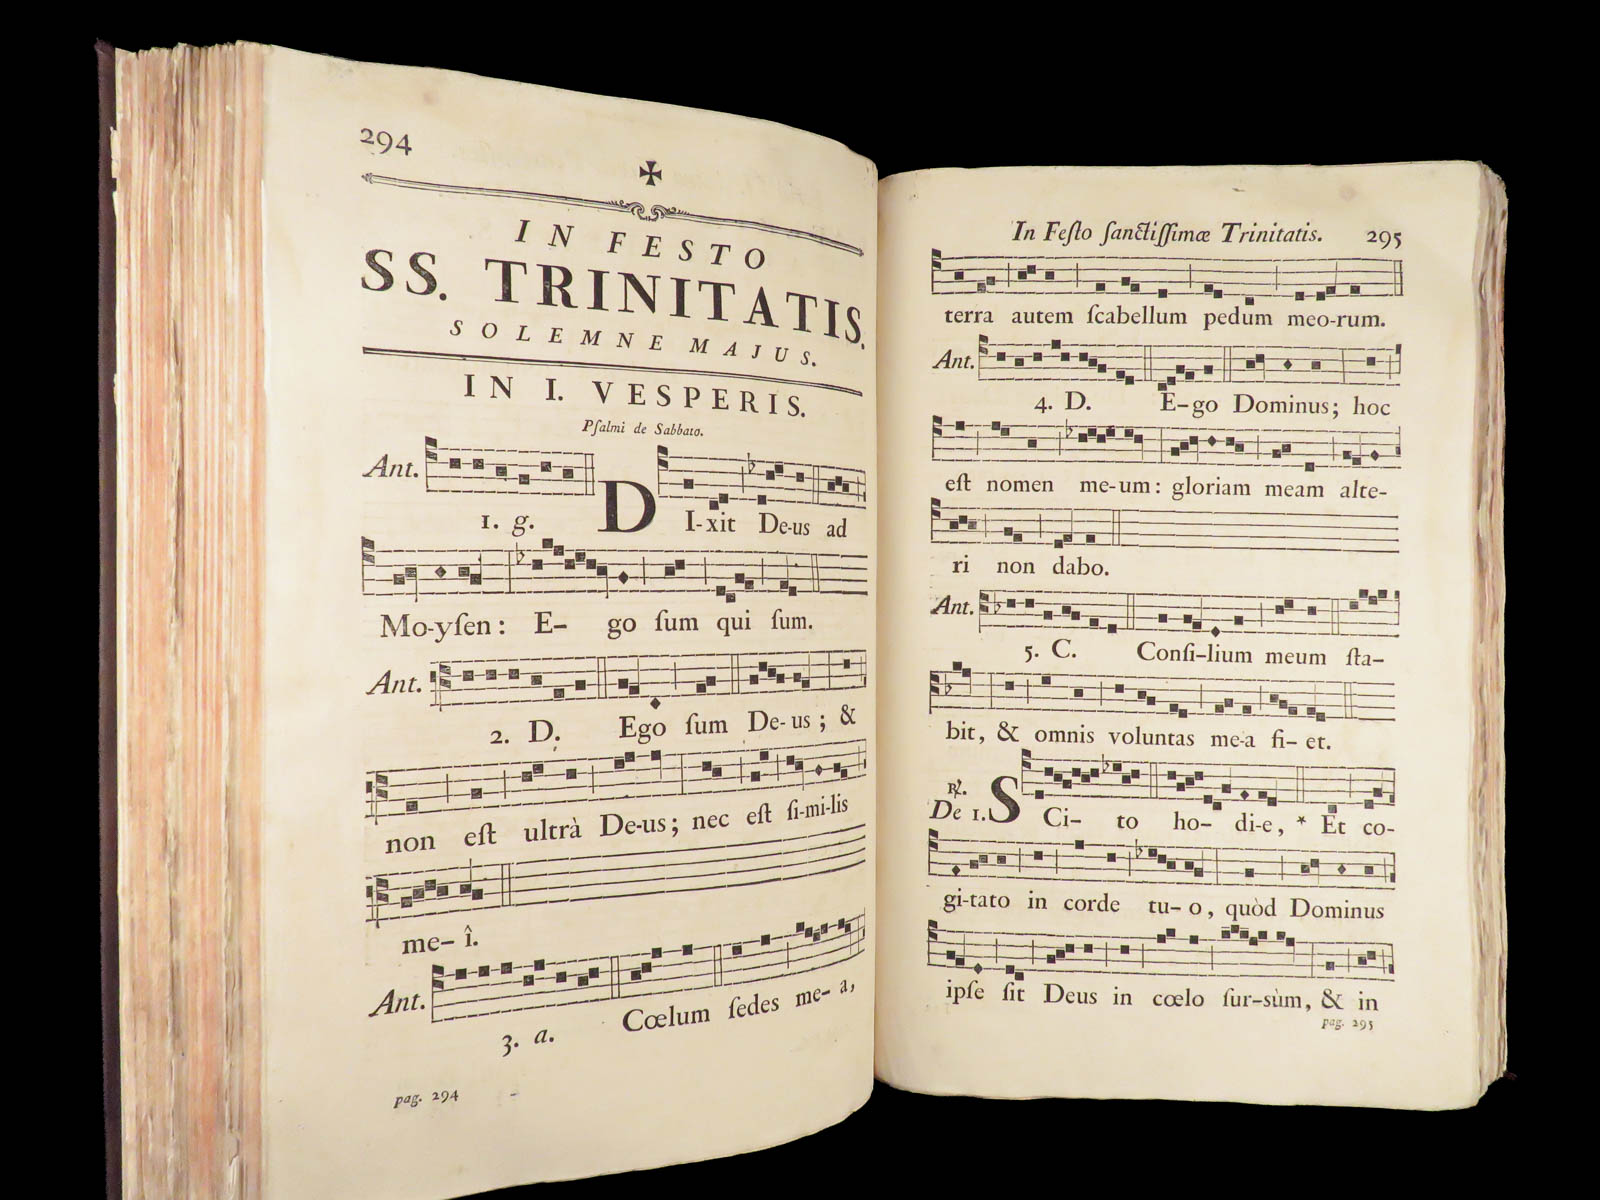 294
IN FESTO
SS. TRINITATIS.
SOLEMNE MAJUS.
IN I. VESPERIS.
Pſalmi de Sabbato.
Ant.
1. g. DI-xit De-us ad
Mo-yſen: E- go ſum qui ſum.
Ant.
2. D. Ego ſum De-us; &
non eſt ultrà De-us; nec eſt ſi-mi-lis
me- î.
Ant.
3. a. Cœlum ſedes me- a,
pag. 294
In Feſto ſanctiſſimæ Trinitatis. 295
terra autem ſcabellum pedum meo-rum.
Ant.
4. D. E-go Dominus; hoc
eſt nomen me-um: gloriam meam alte-
ri non dabo.
Ant.
5. C. Conſi-lium meum ſta-
bit, & omnis voluntas me-a fi- et.
℟.
De 1. SCi- to ho- di-e, * Et co-
gi-tato in corde tu- o, quòd Dominus
ipſe ſit Deus in cœlo ſur-sùm, & in
pag. 295